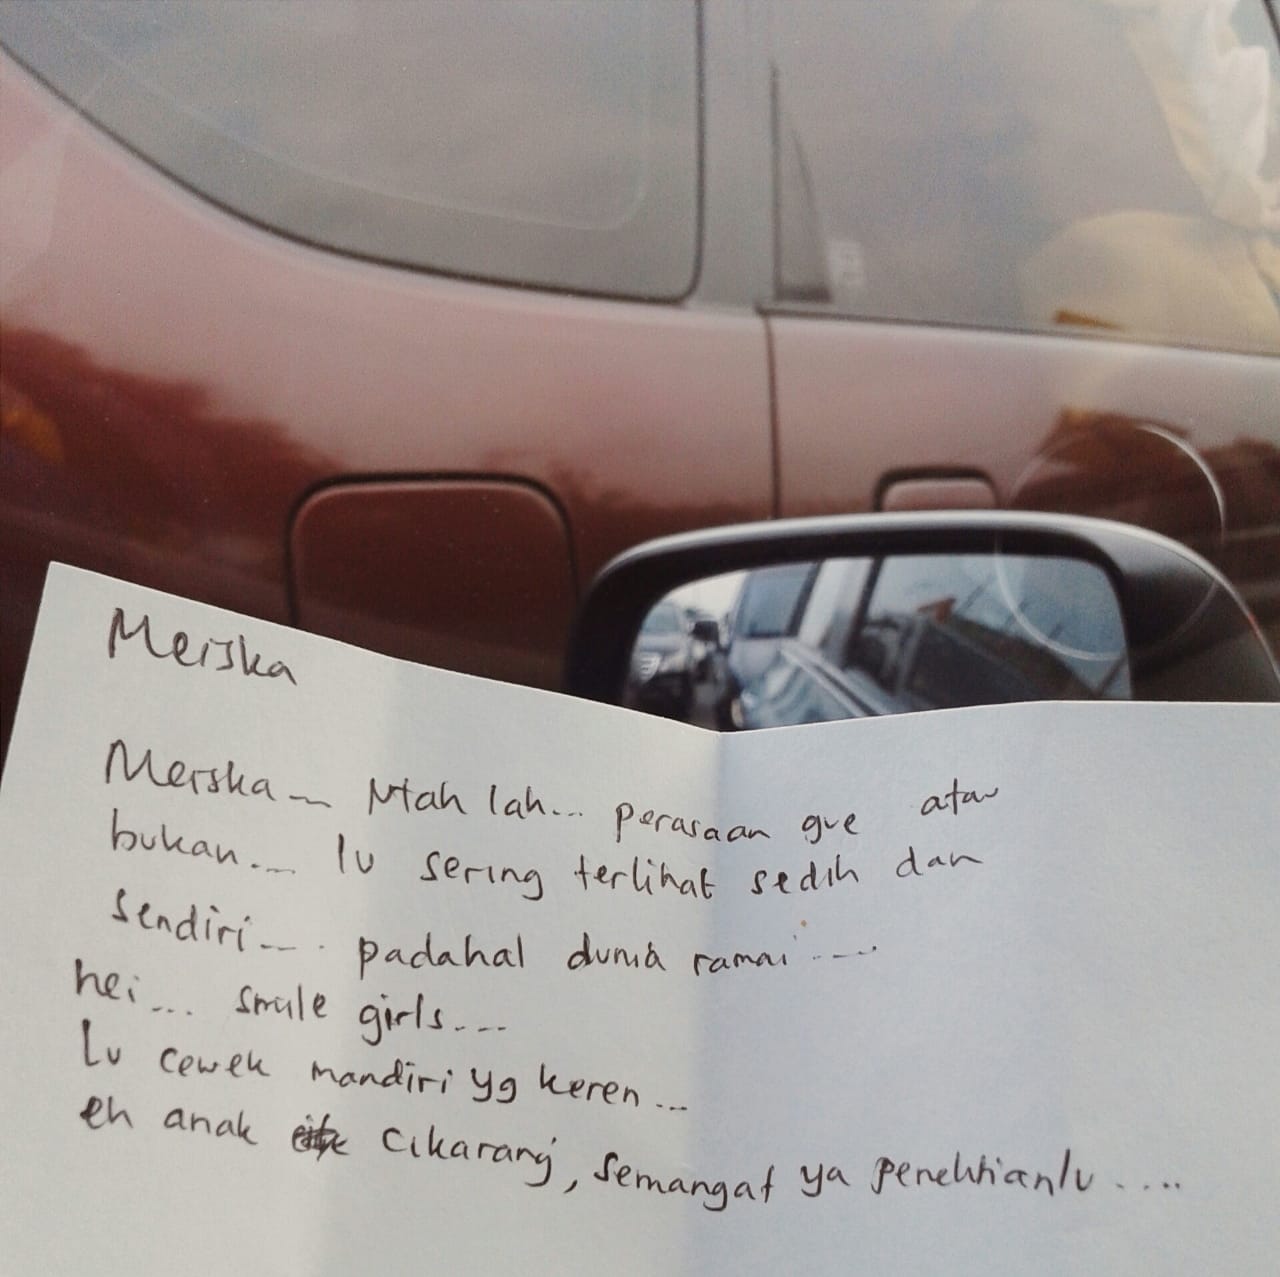 Meiska
Meiska... Ntah lah... perasaan gue atau
bukan... lu sering terlihat sedih dan
sendiri... . padahal dunia ramai ....
hei... smile girls....
Lu cewek mandiri yg keren...
eh anak Cikarang, semangat ya penelitianlu ....